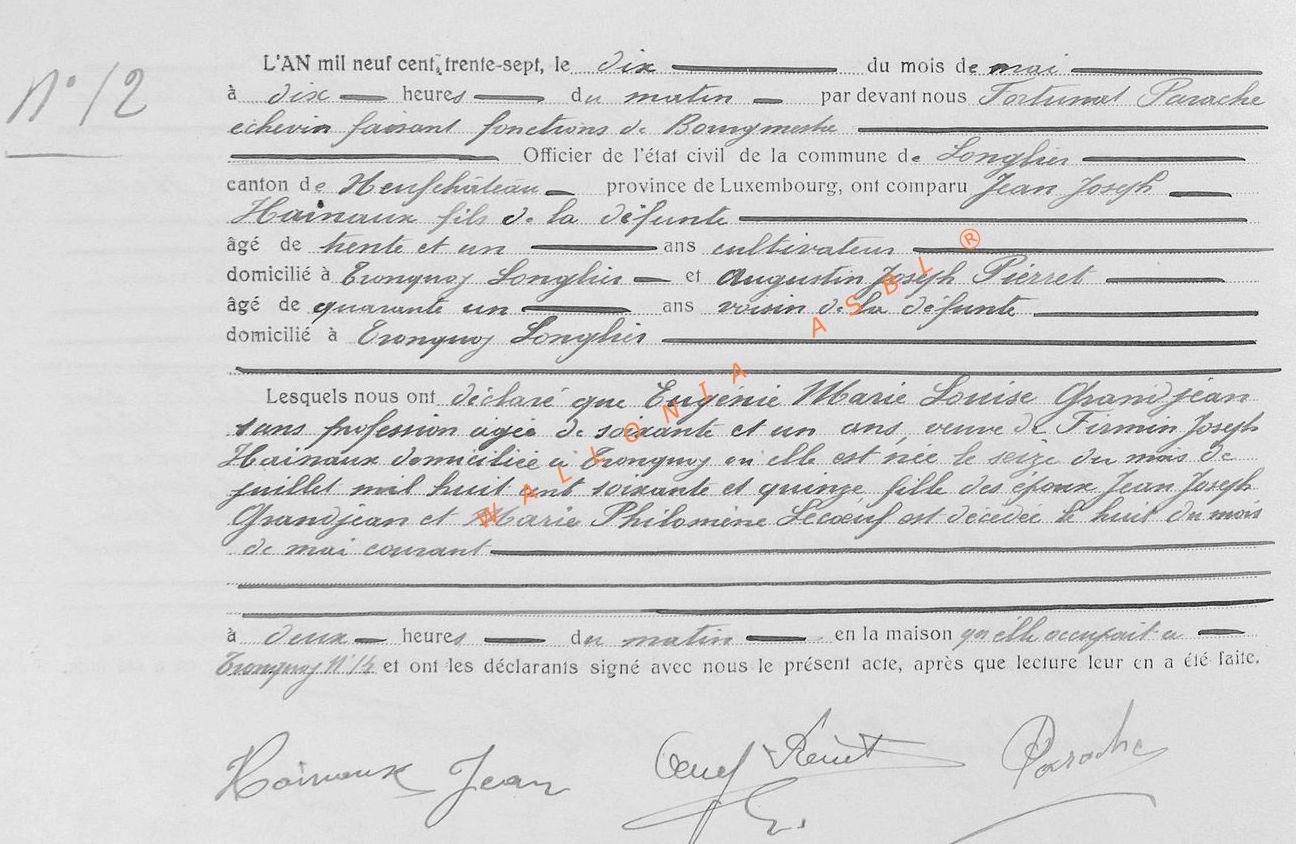 N° 12
L'AN mil neuf cent, trente-sept, le dix du mois de mai
à dix heures du matin par devant nous Fortunat Parache
échevin faisant fonctions de Bourgmestre
Officier de l'état civil de la commune de Longlier
canton de Neufchâteau province de Luxembourg, ont comparu Jean Joseph
Hainaux fils de la défunte
âgé de trente et un ans cultivateur
domicilié à Tronquoy Longlier et Augustin Joseph Pierret
âgé de quarante un ans voisin de la défunte
domicilié à Tronquoy Longlier
Lesquels nous ont déclaré que Eugénie Marie Louise Grandjean
sans profession agée de soixante et un ans, veuve de Firmin Joseph
Hainaux domiciliée à Tronquoy où elle est née le seize du mois de
juillet mil huit cent soixante et quinze, fille des époux Jean Joseph
Grandjean et Marie Philomène Lecoeuf est décédée le huit du mois
de mai courant
à deux heures du matin en la maison qu'elle occupait à
Tronquoy N° et ont les déclarants signé avec nous le présent acte, après que lecture leur en a été faite.
Hainaux Jean Parache
WALLONIA ASBL ®